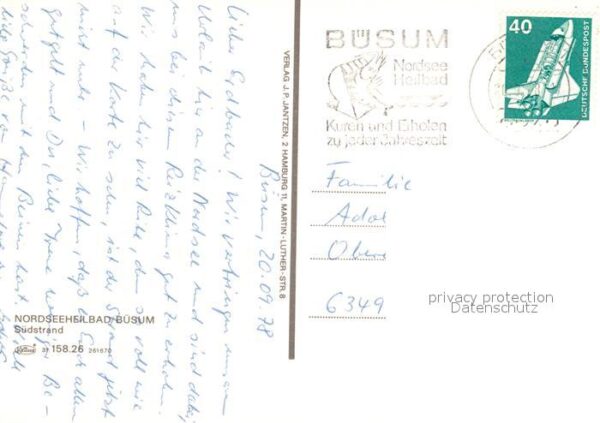 Büsum, 20.09.78
Liebe
! Wir verbringen unseren
Urlaub hier an der Nordsee und sind dabei,
uns bei diesem Reizklima gut zu erholen.
Wir haben hier viel Ruhe, denn so voll wie
auf der Karte zu sehen, ist der Strand jetzt
nicht mehr. Wir hoffen, daß es Euch allen
gut geht und Du, liebe Irene weniger Be-
schwerden mit den Beinen hast. Viele
liebe Grüße von
NORDSEEHEILBAD BÜSUM
Südstrand
158.26 261670
VERLAG J. P. JANTZEN, 2 HAMBURG 11, MARTIN-LUTHER-STR. 8
BÜSUM
Nordsee
Heilbad
Kuren und Erholen
zu jeder Jahreszeit
40
DEUTSCHE BUNDESPOST
Familie
Adol
Obere
6349
privacy protection
Datenschutz